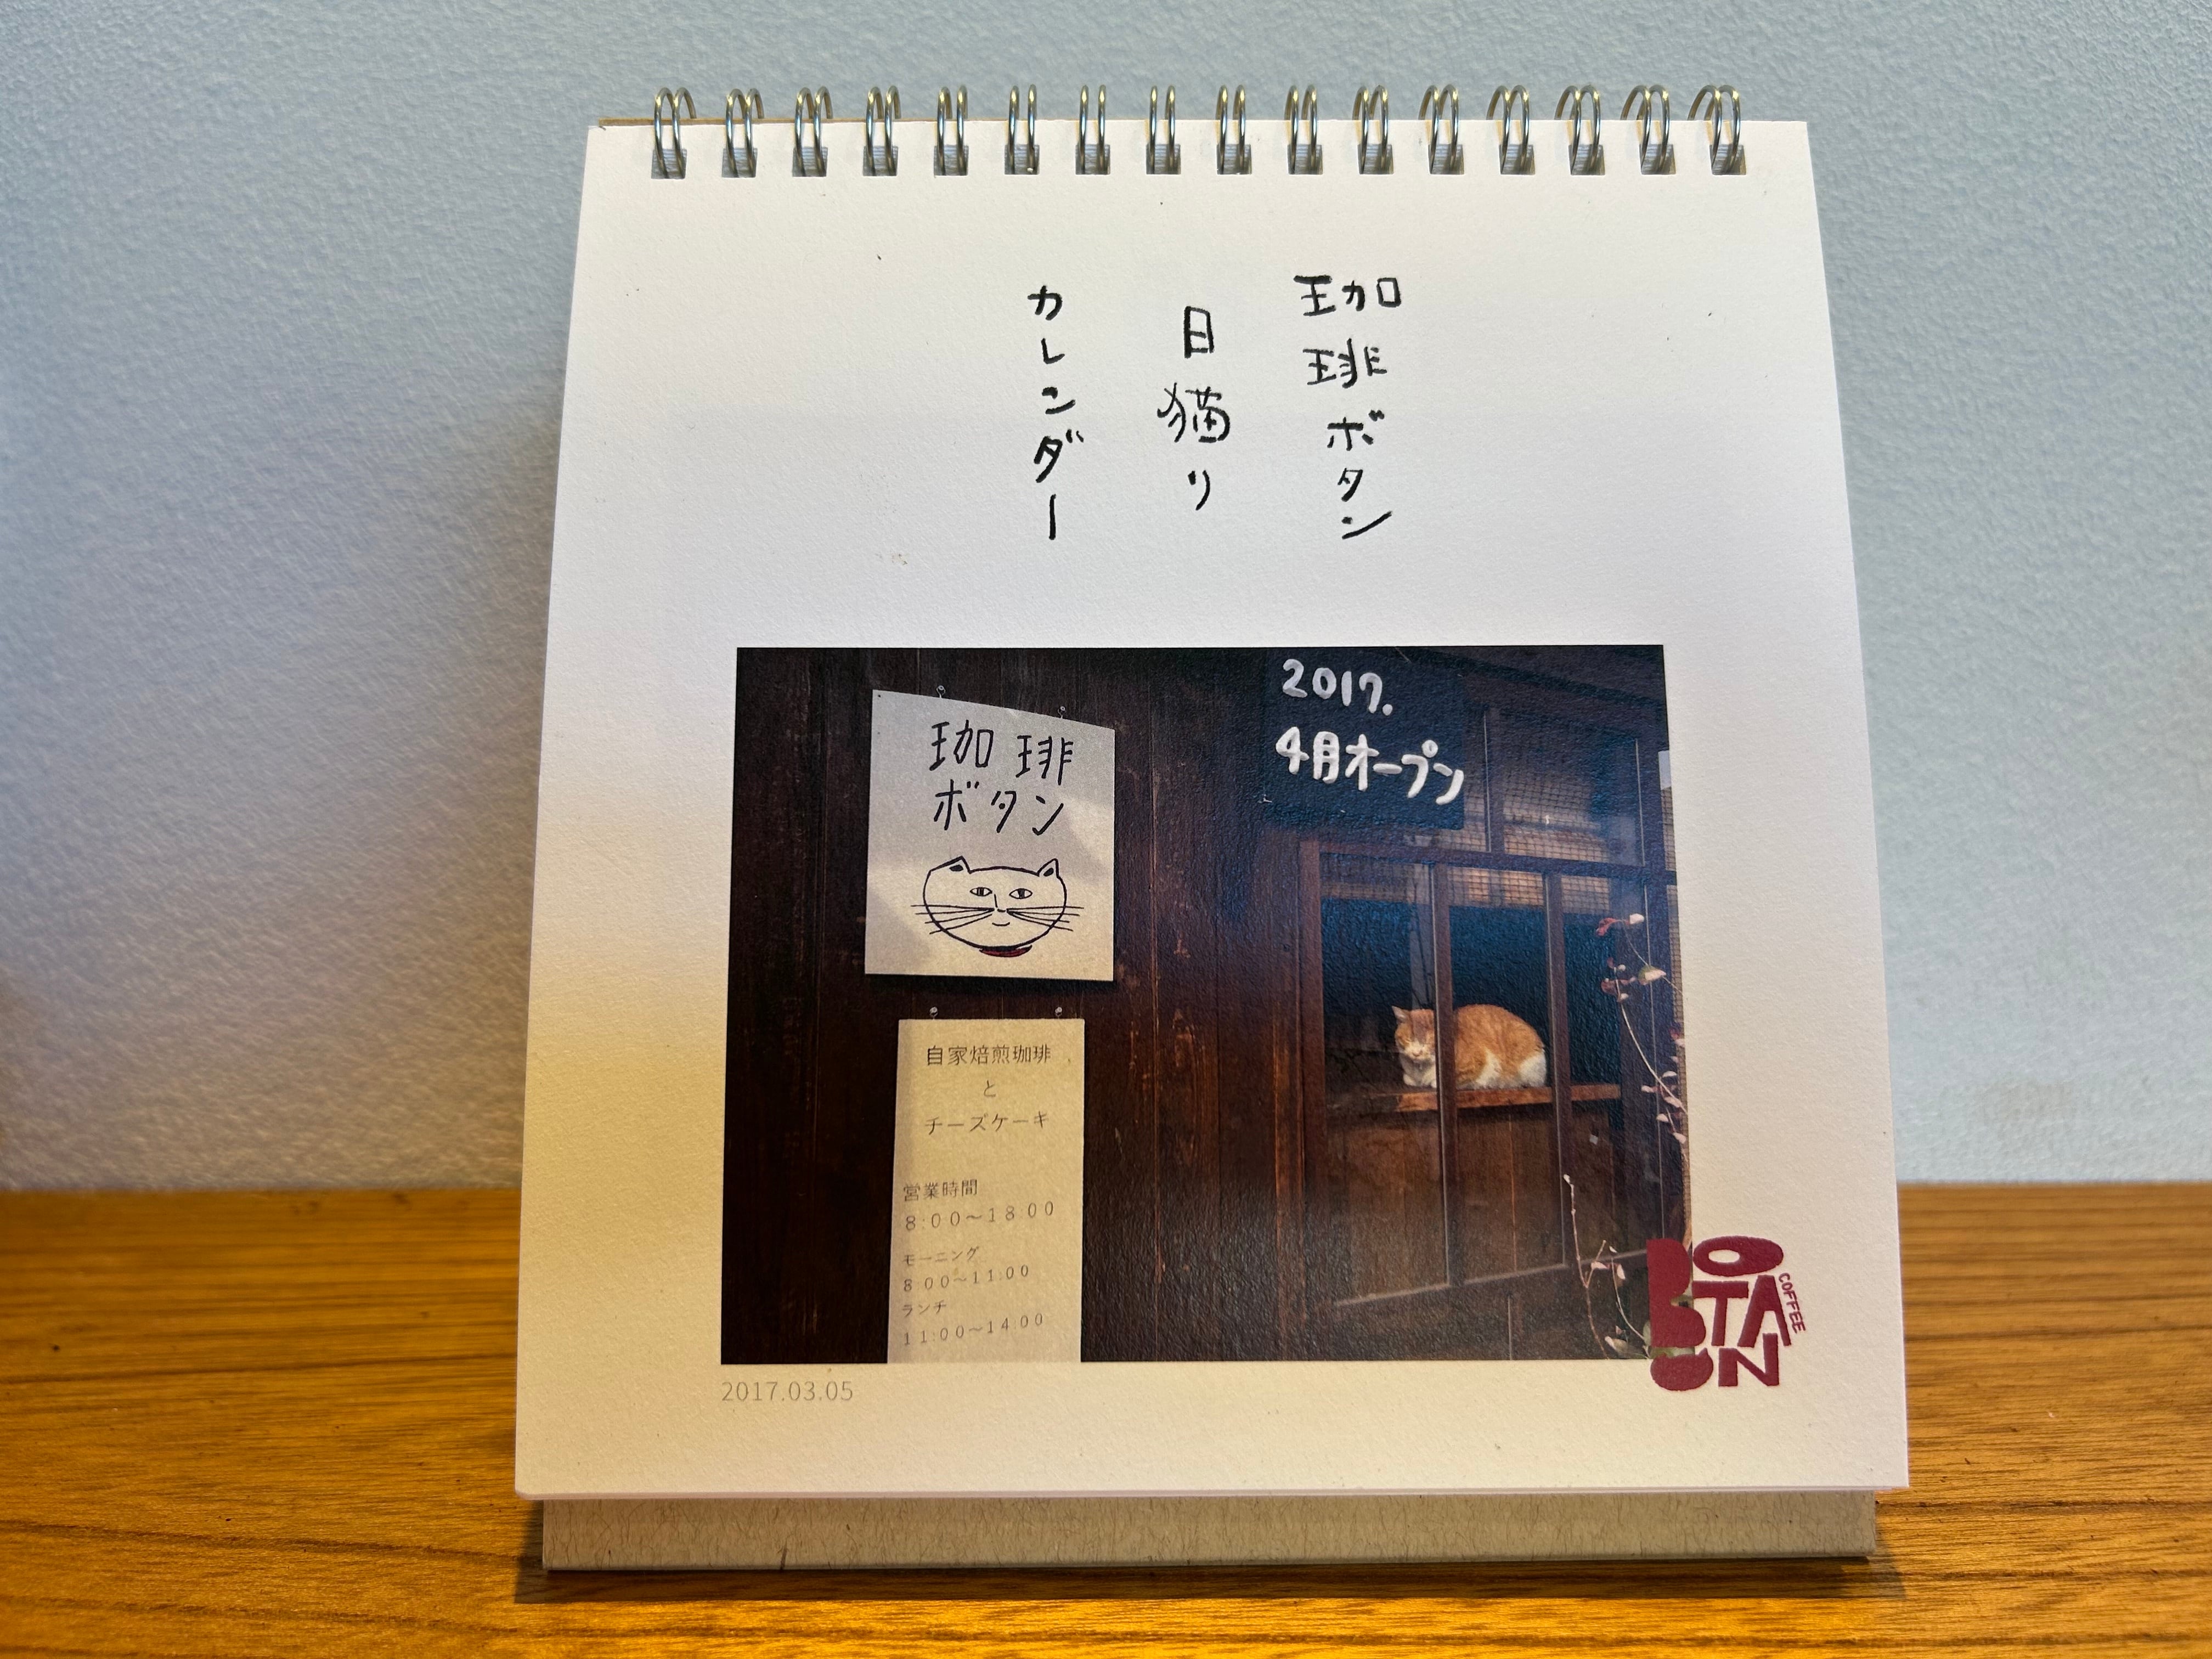 珈琲ボタン
日猫り
カレンダー
珈琲
ボタン
2017.
4月オープン
自家焙煎珈琲
と
チーズケーキ
営業時間
8:00~18:00
モーニング
8:00~11:00
ランチ
11:00~14:00
2017.03.05
BOTAN
COFFEE